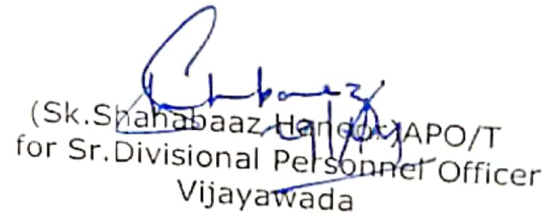 (Sk.Shahabaaz Hanoor)APO/T
for Sr.Divisional Personnel Officer
Vijayawada